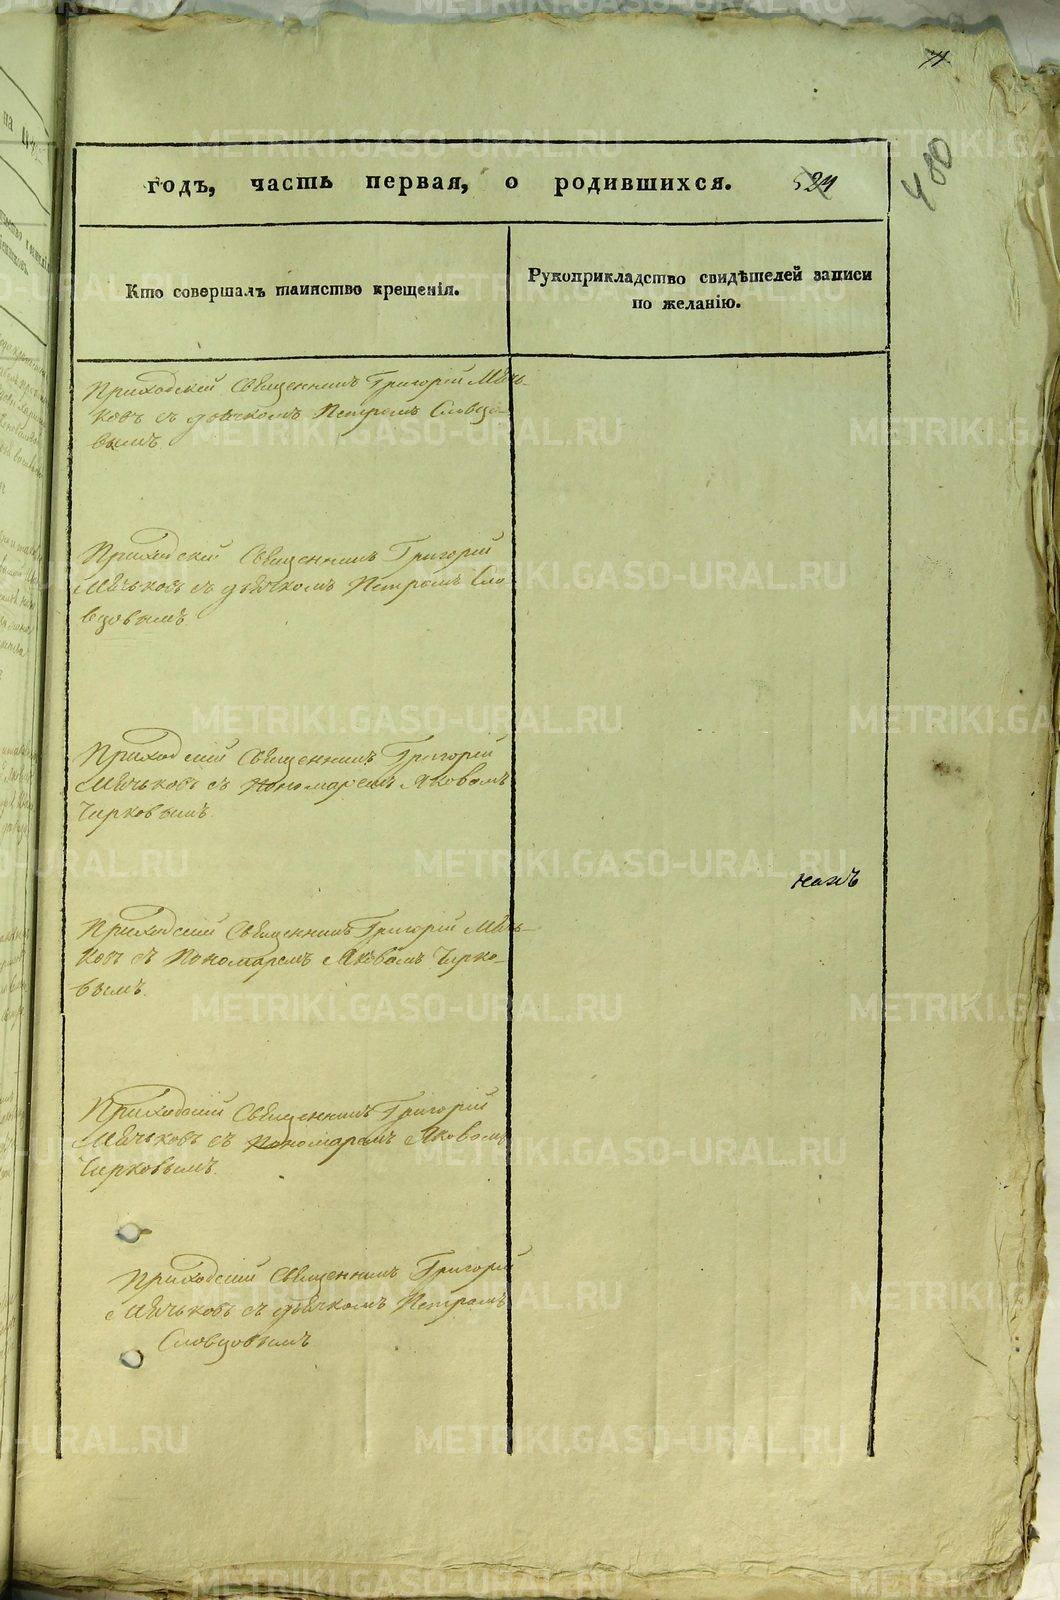 480
годъ, часть первая, о родившихся. 524
Кто совершалъ таинство крещенія.
Рукоприкладство свидѣтелей записи
по желанію.
Приходскій Священникъ Григорій Мѣчь-
ковъ съ дьячкомъ Петромъ Словцо-
вымъ.
Приходскій Священникъ Григорій
Мѣчьковъ съ дьячкомъ Петромъ Сло
вцовымъ
Приходскій Священникъ Григорій
Мѣчьковъ съ Пономаремъ Яковомъ
Чирковымъ.
Приходскій Священникъ Григорій Мѣчь-
ковъ съ Пономаремъ Яковомъ Чирко-
вымъ.
Приходскій Священникъ Григорій
Мѣчьковъ съ Пономаремъ Яковомъ
Чирковымъ.
Приходскій Священникъ Григорій
Мѣчьковъ съ дьячкомъ Петромъ
Словцовымъ
METRIKI.GASO-URAL.RU